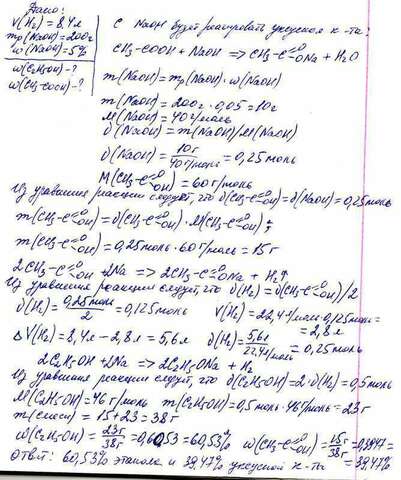 Дано:
V(H₂) = 8,4л
mр(NaOH) = 200г
w(NaOH) = 5%
w(C₂H₅OH) - ?
w(CH₃-COOH) - ?
С NaOH будет реагировать уксусная к-та:
CH₃-COOH + NaOH => CH₃-C=O ONa + H₂O
m(NaOH) = mр(NaOH) · w(NaOH)
m(NaOH) = 200г · 0,05 = 10г
M(NaOH) = 40г/моль
ϑ(NaOH) = m(NaOH)/M(NaOH)
ϑ(NaOH) = 10г / 40г/моль = 0,25моль
M(CH₃-C=O OH) = 60г/моль
Из уравнения реакции следует, что ϑ(CH₃-C=O OH) = ϑ(NaOH) = 0,25моль
m(CH₃-C=O OH) = ϑ(CH₃-C=O OH) · M(CH₃-C=O OH);
m(CH₃-C=O OH) = 0,25моль · 60г/моль = 15г
2CH₃-C=O OH + 2Na => 2CH₃-C=O ONa + H₂↑
Из уравнения реакции следует, что ϑ(H₂) = ϑ(CH₃-C=O OH)/2
ϑ(H₂) = 0,25моль / 2 = 0,125моль V(H₂) = 22,4л/моль · 0,125моль = = 2,8л
ΔV(H₂) = 8,4л - 2,8л = 5,6л ϑ(H₂) = 5,6л / 22,4л/моль = 0,25моль
2C₂H₅OH + 2Na => 2C₂H₅ONa + H₂
Из уравнения реакции следует, что ϑ(C₂H₅OH) = 2·ϑ(H₂) = 0,5моль
M(C₂H₅OH) = 46г/моль m(C₂H₅OH) = 0,5моль · 46г/моль = 23г
m(смеси) = 15 + 23 = 38г
w(C₂H₅OH) = 23г / 38г = 0,6053 = 60,53% w(CH₃-C=O OH) = 15г / 38г = 0,3947 = = 39,47%
Ответ: 60,53% этанола и 39,47% уксусной к-ты